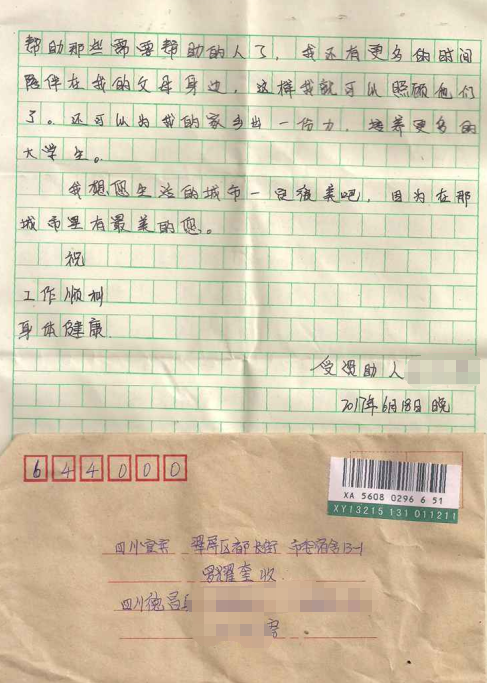 帮助那些需要帮助的人了，我还有更多的时间
陪伴在我的父母身边，这样我就可以照顾他们
了。还可以为我的家乡出一份力，培养更多的
大学生。
我想您生活的城市一定很美吧，因为在那
城市里有最美的您。
祝
工作顺利
身体健康
受资助人
2017年6月18日晚
644000
XA 5608 0296 6 51
XY13215 131 011211
四川宜宾 翠屏区都长街 市委宿舍13-1
罗耀奎 收
四川德昌县
寄